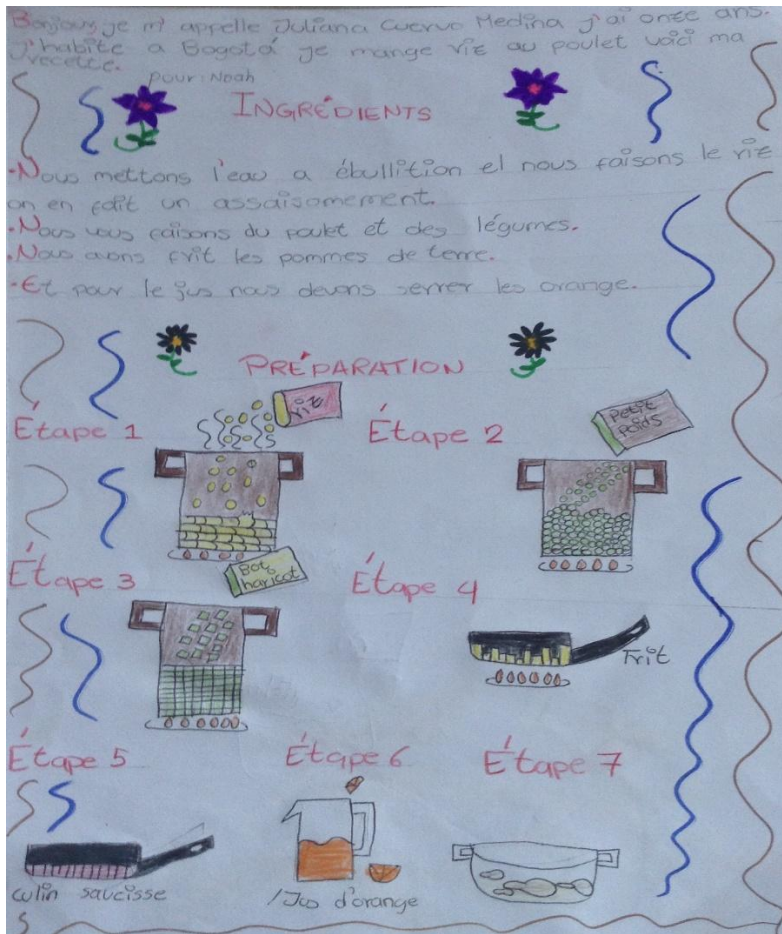 Bonjour je m'appelle Juliana Cuervo Medina j'ai onze ans.
j'habite a Bogotá je mange riz au poulet voici ma
recette.
pour: Noah
INGRÉDIENTS
•Nous mettons l'eau a ébullition el nous faisons le riz
on en fait un assaisonement.
•Nous vous faisons du poulet et des légumes.
•Nous avons frit les pommes de terre.
•Et pour le jus nous devons serrer les orange.
PRÉPARATION
Étape 1
riz
Étape 2
Petit
Poids
Étape 3
haricot
Étape 4
Frit
Étape 5
Étape 6
Étape 7
culin saucisse
/Jus d'orange